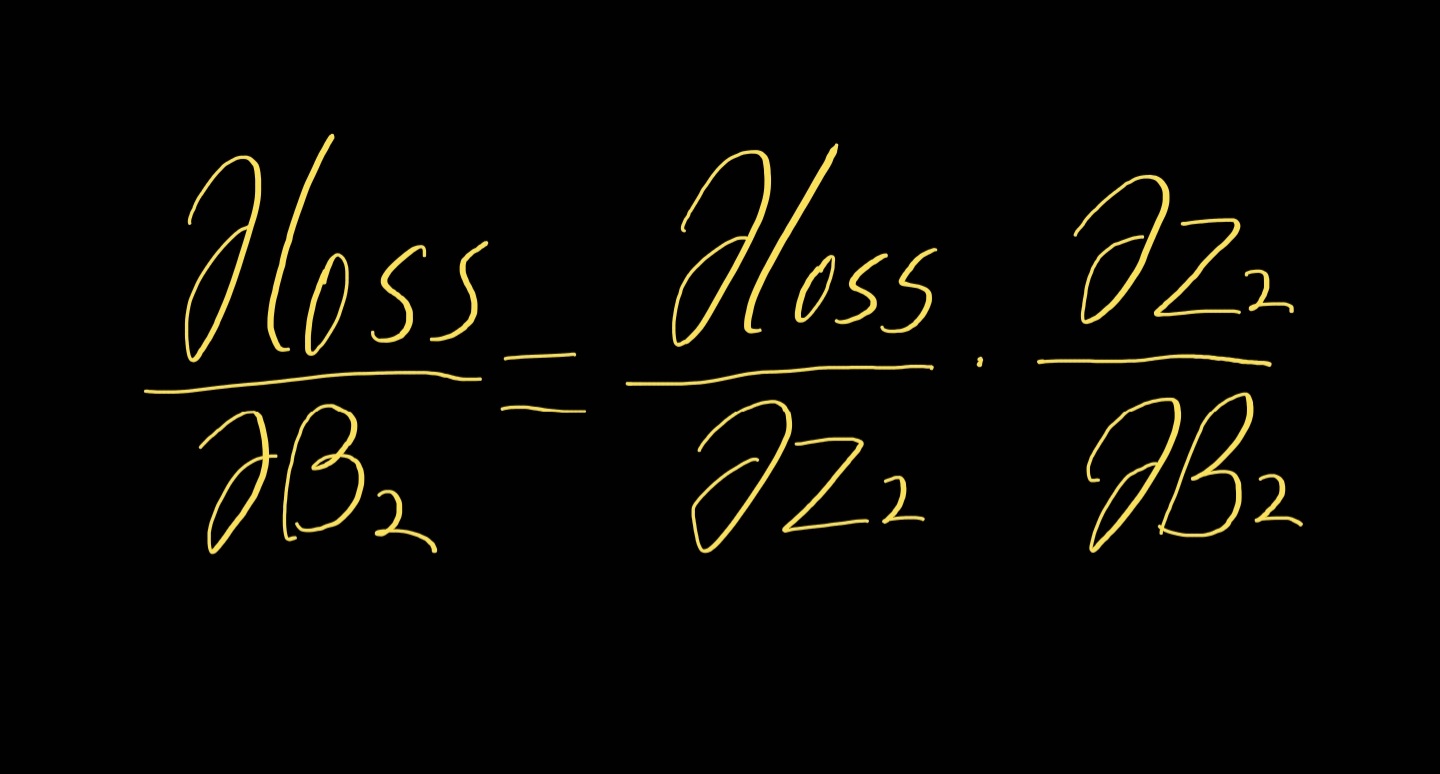 ∂loss/∂B₂ = ∂loss/∂Z₂ · ∂Z₂/∂B₂